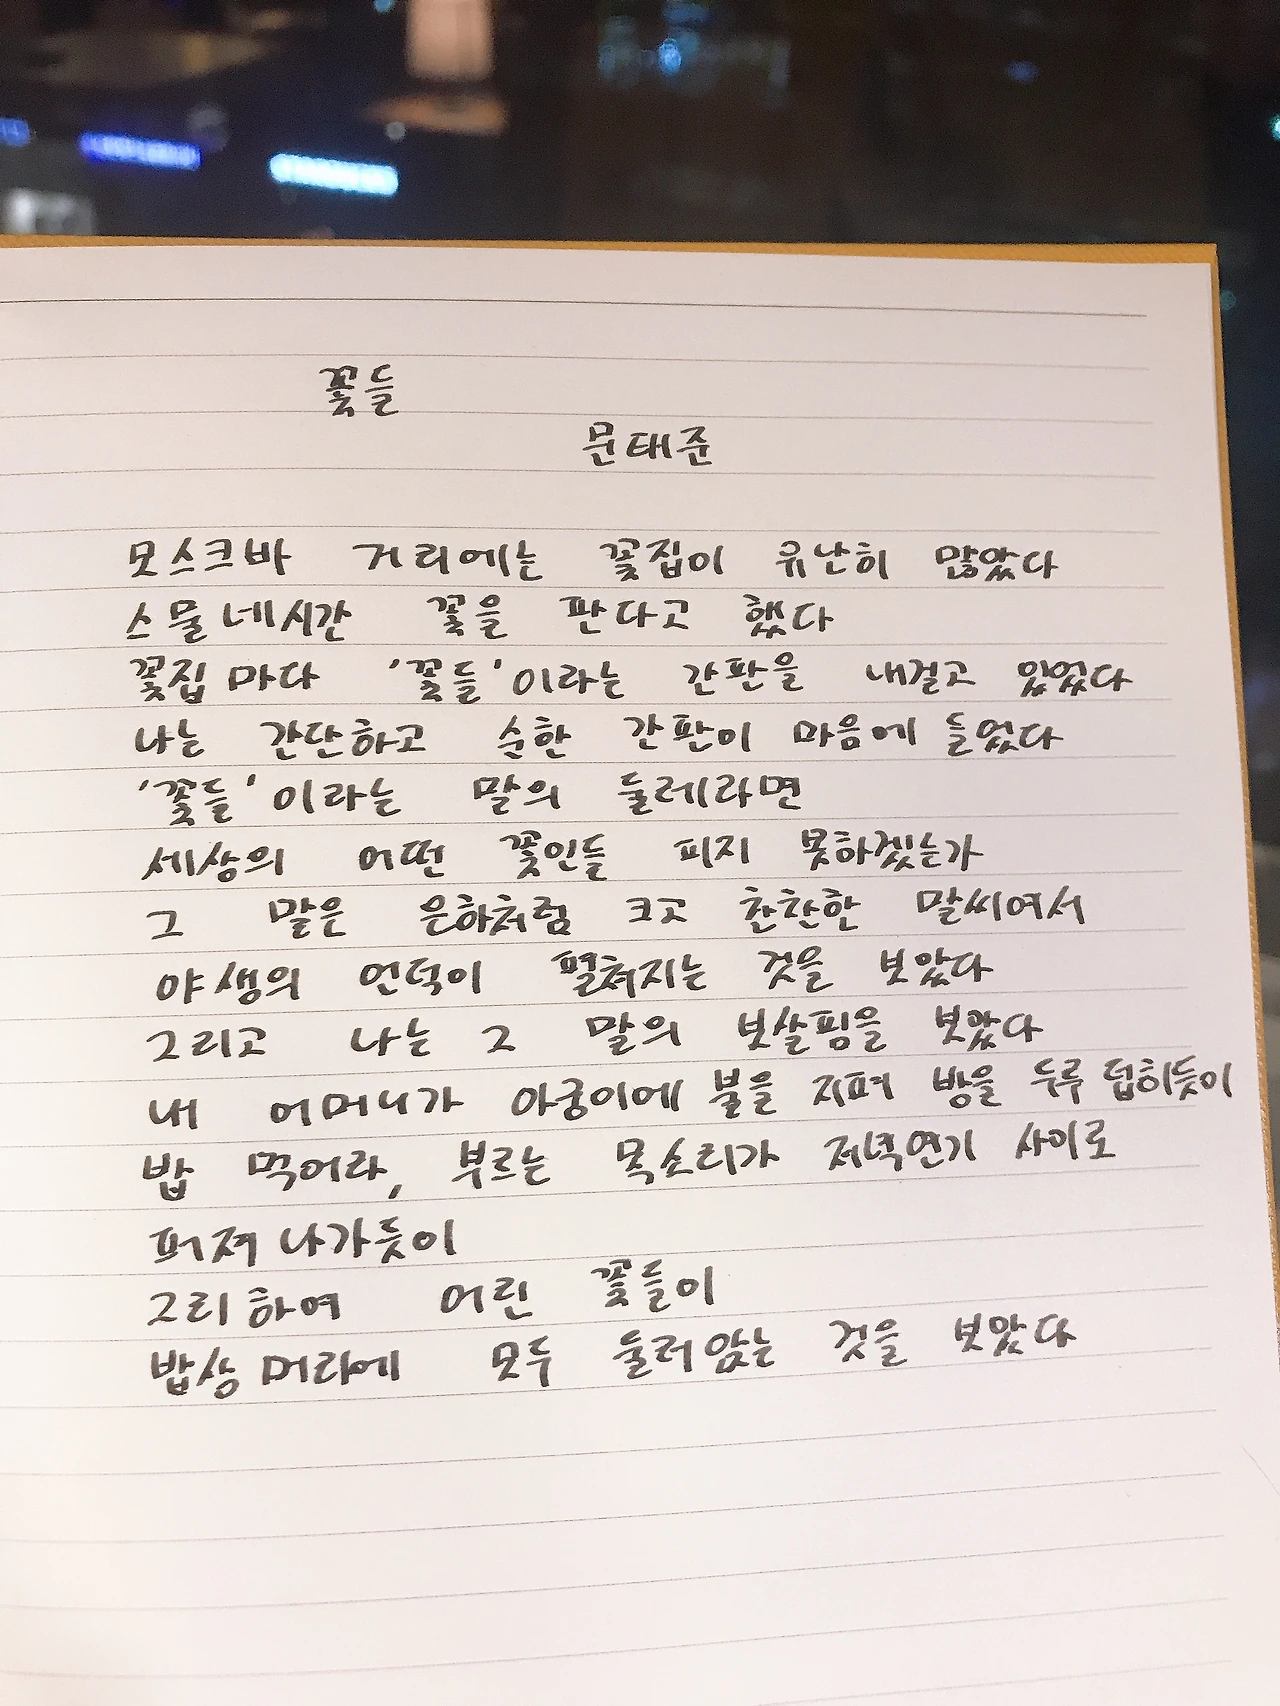 꽃들
문태준
모스크바 거리에는 꽃집이 유난히 많았다
스물네시간 꽃을 판다고 했다
꽃집마다 '꽃들'이라는 간판을 내걸고 있었다
나는 간단하고 순한 간판이 마음에 들었다
'꽃들'이라는 말의 둘레라면
세상의 어떤 꽃인들 피지 못하겠는가
그 말은 은하처럼 크고 찬찬한 말씨여서
야생의 언덕이 펼쳐지는 것을 보았다
그리고 나는 그 말의 보살핌을 보았다
내 어머니가 아궁이에 불을 지펴 방을 두루 덥히듯이
밥 먹어라, 부르는 목소리가 저녁연기 사이로
퍼져나가듯이
그리하여 어린 꽃들이
밥상머리에 모두 둘러앉는 것을 보았다